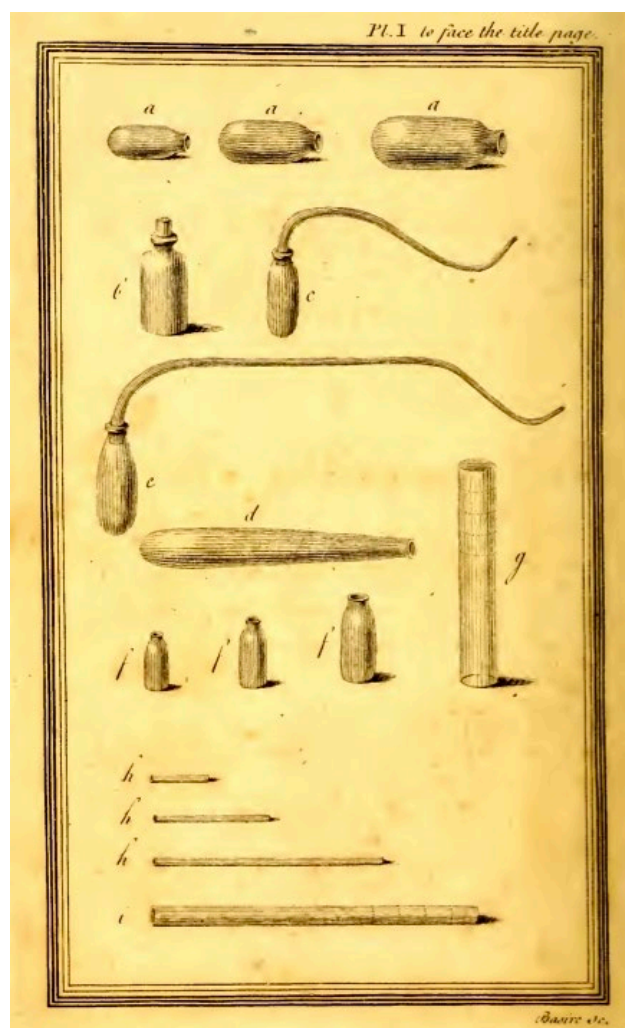 Pl. I to face the title page.
a a a
b c
e
d
g
f f f
h
h
h
i
Basire Sc.